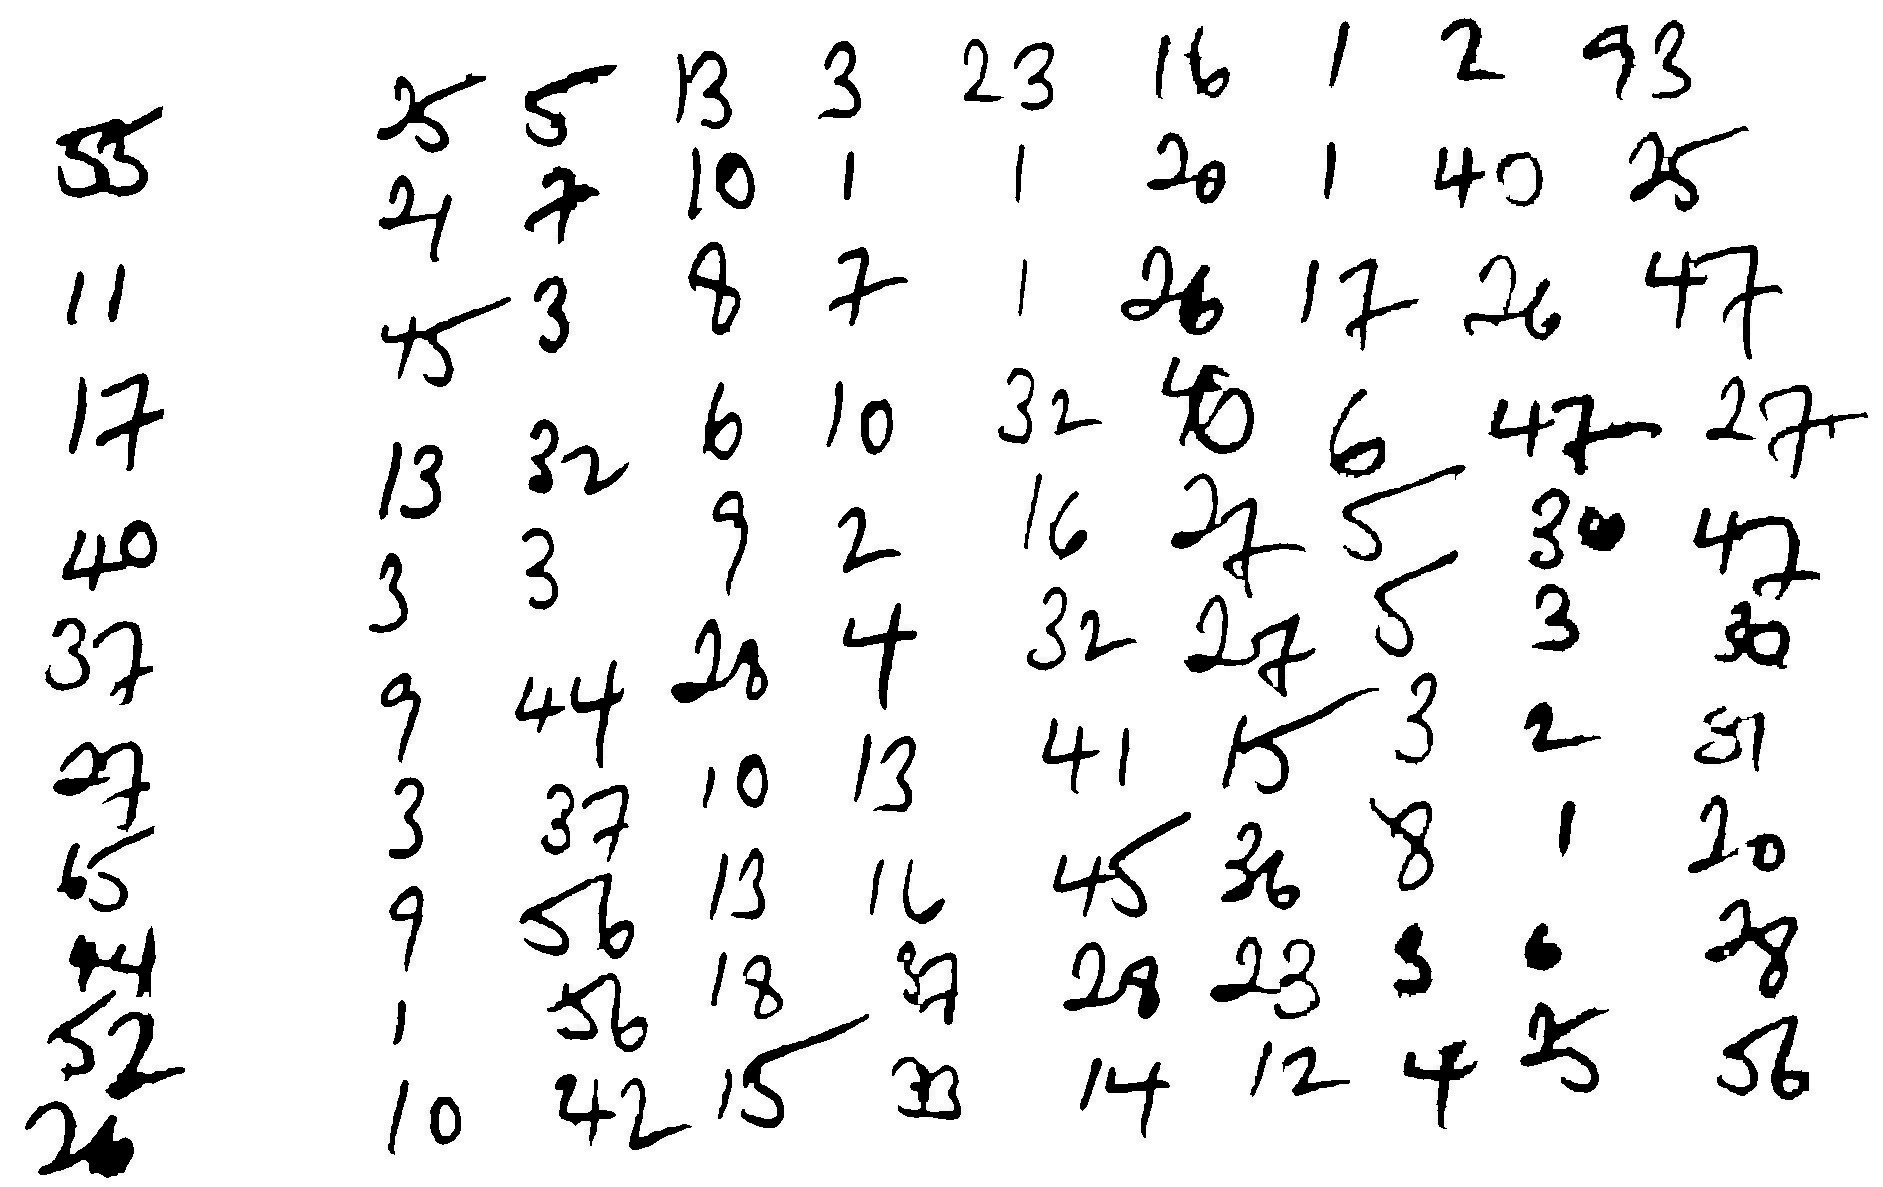 55 25 5 13 3 23 16 1 2 93
11 21 7 10 1 1 20 1 40 25
17 45 3 8 7 1 26 17 26 47
40 13 32 6 10 32 40 6 47 27
37 3 3 9 2 16 27 5 30 47
27 9 44 28 4 32 27 5 3 30
65 3 37 10 13 41 15 3 2 31
44 9 56 13 16 45 36 8 1 20
52 1 56 18 37 28 23 3 6 28
26 10 42 15 33 14 12 4 25 56